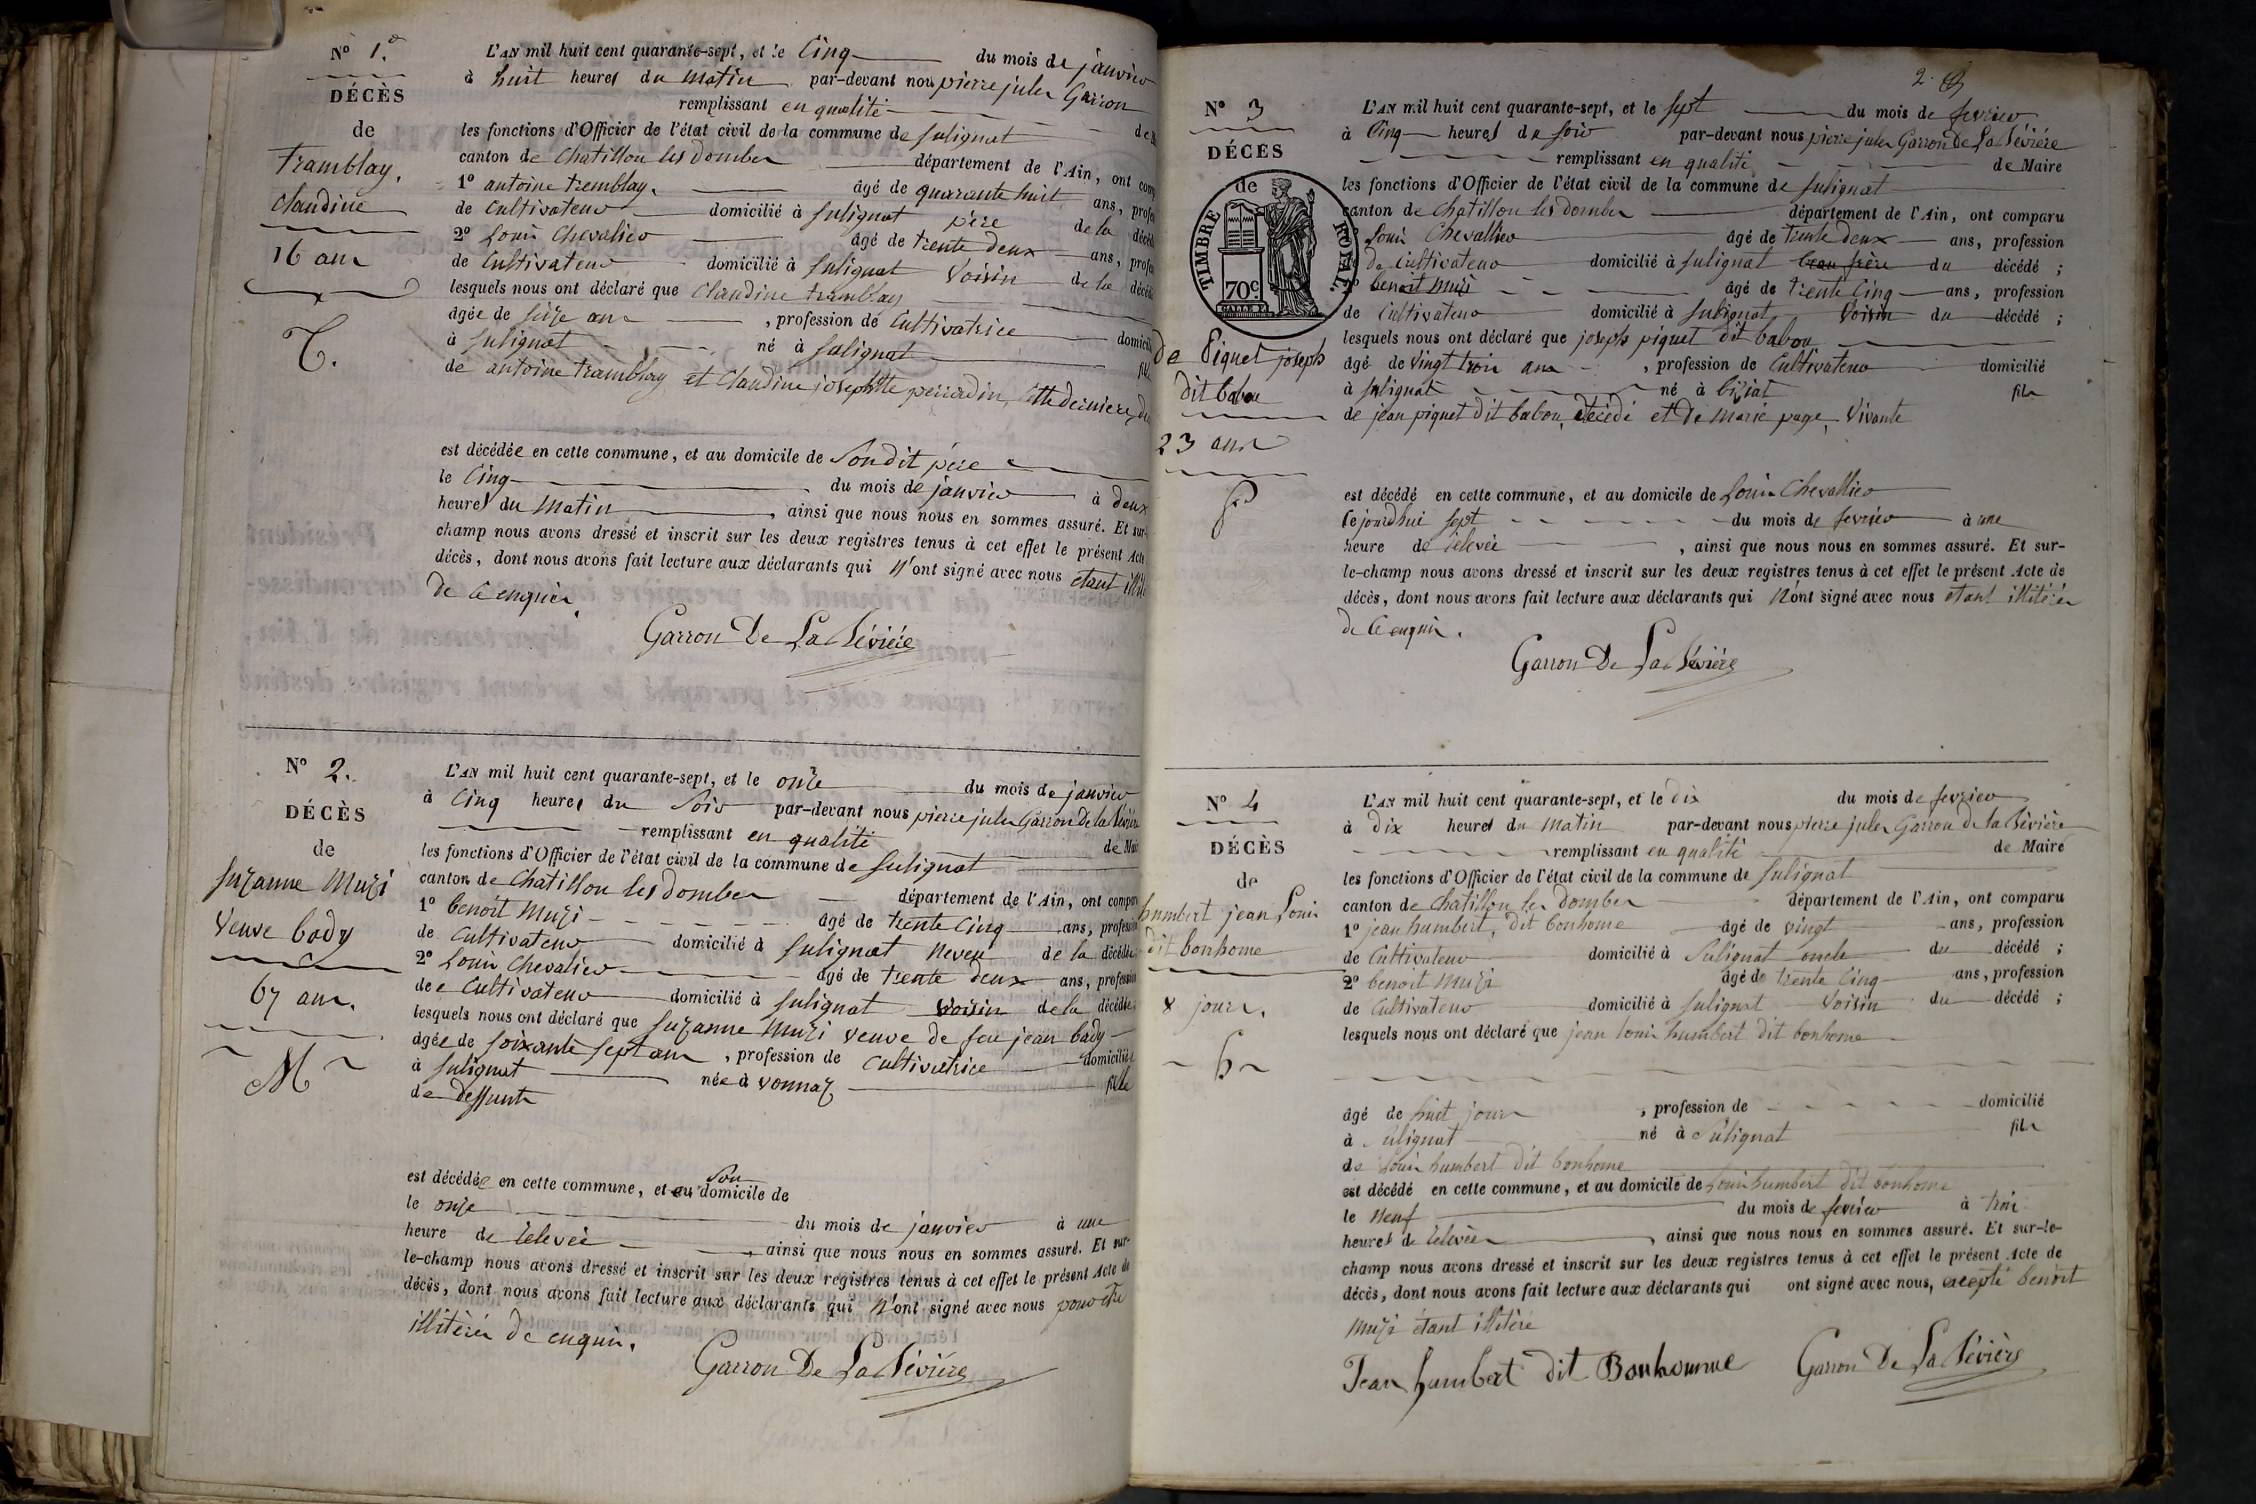 N° 1.er
DÉCÈS
de
Tramblay,
Claudine
16 ans
T.
L'AN mil huit cent quarante-sept, et le Cinq du mois de janvier
à huit heures du matin par-devant nous pierre jules Garron
remplissant en qualité de
les fonctions d'Officier de l'état civil de la commune de Sulignat
canton de Chatillon les dombes département de l'Ain, ont comp
1° antoine tremblay, âgé de quarante huit ans, profes
de Cultivateur domicilié à Sulignat père de la décéd
2° Louis Chevalier âgé de trente deux ans, profes
de Cultivateur domicilié à Sulignat Voisin de la décéd
lesquels nous ont déclaré que Claudine tramblay
âgée de seize ans , profession de Cultivatrice domicil
à Sulignat né à Sulignat fil
de antoine tramblay et Claudine josephtte perradin, Cette derniere
est décédée en cette commune, et au domicile de Son dit père
le Cinq du mois de janvier à deux
heures du Matin , ainsi que nous nous en sommes assuré. Et sur-
champ nous avons dressé et inscrit sur les deux registres tenus à cet effet le présent Acte
décès, dont nous avons fait lecture aux déclarants qui N'ont signé avec nous etant
de Ce enquis.
Garron De La Sévière
N° 2.
DÉCÈS
de
Suzanne Muzi
Veuve body
67 ans.
M
L'AN mil huit cent quarante-sept, et le onze du mois de janvier
à Cinq heures du Soir par-devant nous pierre jules Garron De la Sévière
remplissant en qualité de Mai
les fonctions d'Officier de l'état civil de la commune de Sulignat
canton de Chatillon les dombes département de l'Ain, ont compa
1° benoit Muzi âgé de trente Cinq ans, professi
de Cultivateur domicilié à Sulignat Neveu de la décédée
2° Louis Chevalier âgé de trente deux ans, profession
de Cultivateur domicilié à Sulignat Voisin de la décédée
lesquels nous ont déclaré que Suzanne Muzi veuve de feu jean body
âgée de Soixante Sept ans , profession de Cultivatrice domicilié
à Sulignat née à Vonnaz fille
de deffunts
est décédée en cette commune, et au Son domicile de
le onze du mois de janvier à une
heure de relevée , ainsi que nous nous en sommes assuré. Et sur-
le-champ nous avons dressé et inscrit sur les deux registres tenus à cet effet le présent Acte de
décès, dont nous avons fait lecture aux déclarants qui N'ont signé avec nous pour etre
illitérés de enquis.
Garron De La Sévière
2.
N° 3
DÉCÈS
de
TIMBRE ROYAL
70c
de Piquet joseph
dit babou
23 ans
P
L'AN mil huit cent quarante-sept, et le Sept du mois de fevrier
à Cinq heures du Soir par-devant nous pierre jules Garron De La Sévière
remplissant en qualité de Maire
les fonctions d'Officier de l'état civil de la commune de Sulignat
canton de Chatillon les dombes département de l'Ain, ont comparu
Louis Chevallier âgé de trente deux ans, profession
de Cultivateur domicilié à Sulignat beau frère du décédé ;
benoit Muzi âgé de trente Cinq ans, profession
de Cultivateur domicilié à Sulignat Voisin du décédé ;
lesquels nous ont déclaré que joseph piquet dit babou
âgé de Vingt trois ans , profession de Cultivateur domicilié
à Sulignat né à biziat fils
de jean piquet dit babou, décédé et de Marie page, Vivante
est décédé en cette commune, et au domicile de Louis Chevallier
Cejourdhui Sept du mois de fevrier à une
heure de relevée , ainsi que nous nous en sommes assuré. Et sur-
le-champ nous avons dressé et inscrit sur les deux registres tenus à cet effet le présent Acte de
décès, dont nous avons fait lecture aux déclarants qui N'ont signé avec nous etant illitérés
de Ce enquis.
Garron De La Sévière
N° 4
DÉCÈS
de
humbert jean Louis
dit bonhome
8 jours.
h
L'AN mil huit cent quarante-sept, et le dix du mois de fevrier
à dix heures du Matin par-devant nous pierre jules Garron de la Sévière
remplissant en qualité de Maire
les fonctions d'Officier de l'état civil de la commune de Sulignat
canton de Chatillon les dombes département de l'Ain, ont comparu
1° jean humbert, dit bonhome âgé de vingt ans, profession
de Cultivateur domicilié à Sulignat oncle du décédé ;
2° benoit Muzi âgé de trente Cinq ans, profession
de Cultivateur domicilié à Sulignat Voisin du décédé ;
lesquels nous ont déclaré que jean louis humbert dit bonhome
âgé de huit jours , profession de domicilié
à Sulignat né à Sulignat fils
de Louis humbert dit bonhome
est décédé en cette commune, et au domicile de Louis humbert dit bonhome
le Neuf du mois de fevrier à trois
heures de relevées , ainsi que nous nous en sommes assuré. Et sur-le-
champ nous avons dressé et inscrit sur les deux registres tenus à cet effet le présent Acte de
décès, dont nous avons fait lecture aux déclarants qui ont signé avec nous, excepté benoit
Muzi étant illitéré
Jean humbert dit Bonhomme Garron De La Sévière